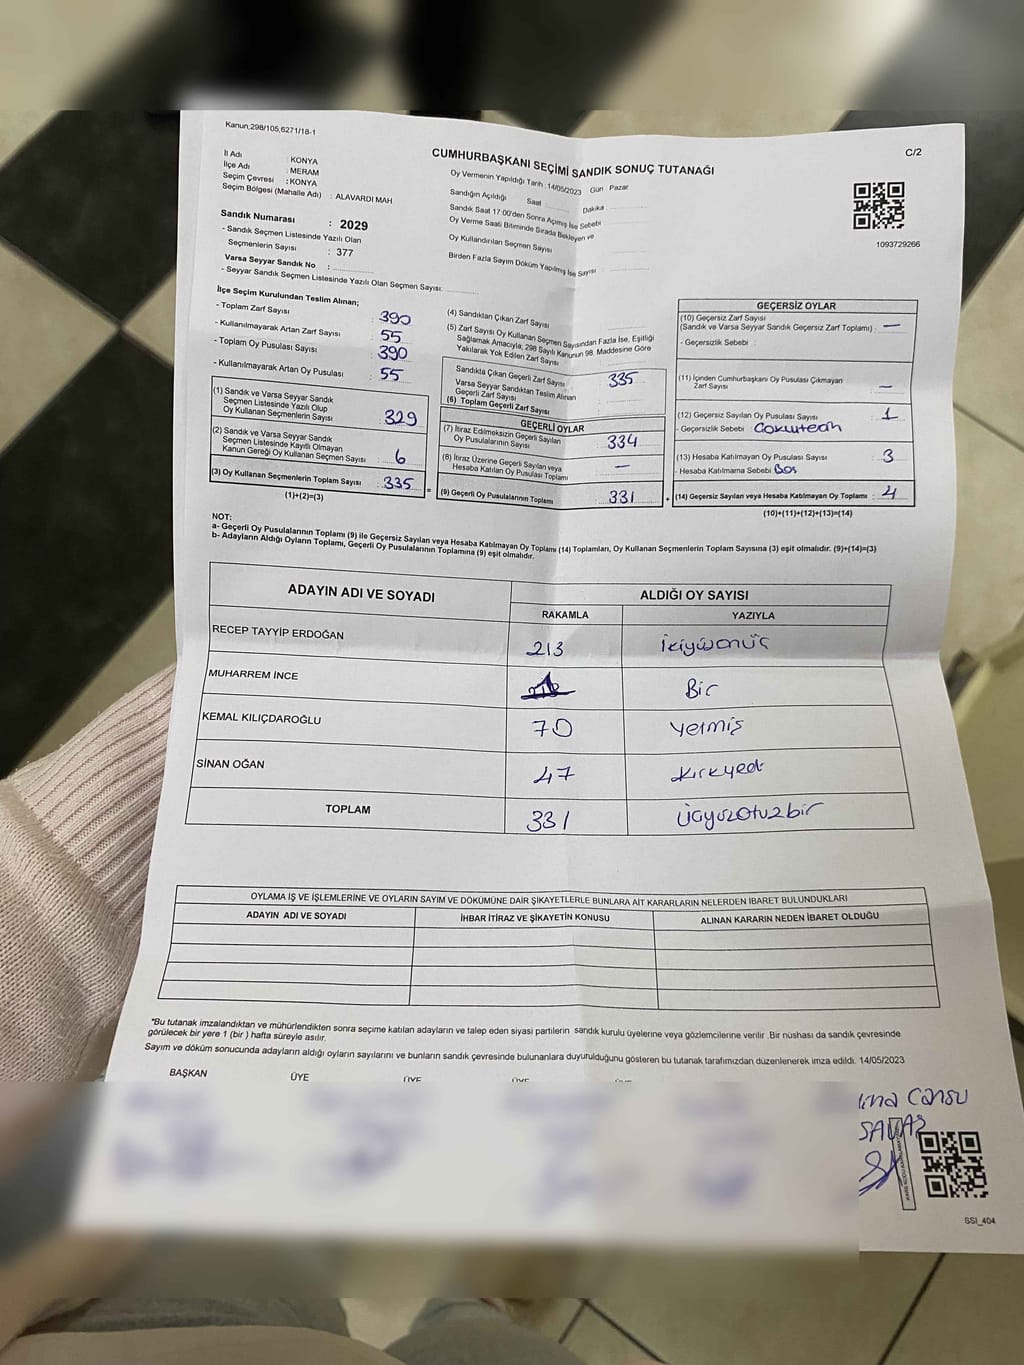 Kanun;298/105,6271/18-1
C/2
CUMHURBAŞKANI SEÇİMİ SANDIK SONUÇ TUTANAĞI
İl Adı : KONYA
İlçe Adı : MERAM
Seçim Çevresi : KONYA
Seçim Bölgesi (Mahalle Adı) : ALAVARDI MAH
Oy Vermenin Yapıldığı Tarih : 14/05/2023 Gün Pazar
Sandığın Açıldığı Saat Dakika
Sandık Saat 17:00'den Sonra Açılmış İse Sebebi
Oy Verme Saati Bitiminde Sırada Bekleyen ve
Oy Kullandırılan Seçmen Sayısı
Birden Fazla Sayım Döküm Yapılmış İse Sayısı
1093729266
Sandık Numarası : 2029
- Sandık Seçmen Listesinde Yazılı Olan
Seçmenlerin Sayısı : 377
Varsa Seyyar Sandık No :
- Seyyar Sandık Seçmen Listesinde Yazılı Olan Seçmen Sayısı:
İlçe Seçim Kurulundan Teslim Alınan;
- Toplam Zarf Sayısı : 390
- Kullanılmayarak Artan Zarf Sayısı : 55
- Toplam Oy Pusulası Sayısı : 390
- Kullanılmayarak Artan Oy Pusulası : 55
(1) Sandık ve Varsa Seyyar Sandık
Seçmen Listesinde Yazılı Olup
Oy Kullanan Seçmenlerin Sayısı : 329
(2) Sandık ve Varsa Seyyar Sandık
Seçmen Listesinde Kayıtlı Olmayan
Kanun Gereği Oy Kullanan Seçmen Sayısı : 6
(3) Oy Kullanan Seçmenlerin Toplam Sayısı : 335
(1)+(2)=(3)
(4) Sandıktan Çıkan Zarf Sayısı
(5) Zarf Sayısı Oy Kullanan Seçmen Sayısından Fazla İse, Eşitliği
Sağlamak Amacıyla; 298 Sayılı Kanunun 98. Maddesine Göre
Yakılarak Yok Edilen Zarf Sayısı
Sandıkta Çıkan Geçerli Zarf Sayısı 335
Varsa Seyyar Sandıktan Teslim Alınan
Geçerli Zarf Sayısı
(6) Toplam Geçerli Zarf Sayısı
GEÇERLİ OYLAR
(7) İtiraz Edilmeksizin Geçerli Sayılan
Oy Pusulalarının Sayısı 334
(8) İtiraz Üzerine Geçerli Sayılan veya
Hesaba Katılan Oy Pusulası Toplamı —
= (9) Geçerli Oy Pusulalarının Toplamı 331
GEÇERSİZ OYLAR
(10) Geçersiz Zarf Sayısı
(Sandık ve Varsa Seyyar Sandık Geçersiz Zarf Toplamı) : —
- Geçersizlik Sebebi :
(11) İçinden Cumhurbaşkanı Oy Pusulası Çıkmayan
Zarf Sayısı : —
(12) Geçersiz Sayılan Oy Pusulası Sayısı : 1
- Geçersizlik Sebebi :
(13) Hesaba Katılmayan Oy Pusulası Sayısı : 3
- Hesaba Katılmama Sebebi : Boş
+ (14) Geçersiz Sayılan veya Hesaba Katılmayan Oy Toplamı : 4
(10)+(11)+(12)+(13)=(14)
NOT:
a- Geçerli Oy Pusulalarının Toplamı (9) ile Geçersiz Sayılan veya Hesaba Katılmayan Oy Toplamı (14) Toplamları, Oy Kullanan Seçmenlerin Toplam Sayısına (3) eşit olmalıdır. (9)+(14)=(3)
b- Adayların Aldığı Oyların Toplamı, Geçerli Oy Pusulalarının Toplamına (9) eşit olmalıdır.
ADAYIN ADI VE SOYADI ALDIĞI OY SAYISI
RAKAMLA YAZIYLA
RECEP TAYYİP ERDOĞAN 213 ikiyüzonüç
MUHARREM İNCE Bir
KEMAL KILIÇDAROĞLU 70 yetmiş
SİNAN OĞAN 47 kırkyedi
TOPLAM 331 üçyüzotuzbir
OYLAMA İŞ VE İŞLEMLERİNE VE OYLARIN SAYIM VE DÖKÜMÜNE DAİR ŞİKAYETLERLE BUNLARA AİT KARARLARIN NELERDEN İBARET BULUNDUKLARI
ADAYIN ADI VE SOYADI İHBAR İTİRAZ VE ŞİKAYETİN KONUSU ALINAN KARARIN NEDEN İBARET OLDUĞU
"Bu tutanak imzalandıktan ve mühürlendikten sonra seçime katılan adayların ve talep eden siyasi partilerin sandık kurulu üyelerine veya gözlemcilerine verilir .Bir nüshası da sandık çevresinde
görülecek bir yere 1 (bir ) hafta süreyle asılır.
Sayım ve döküm sonucunda adayların aldığı oyların sayılarını ve bunların sandık çevresinde bulunanlara duyurulduğunu gösteren bu tutanak tarafımızdan düzenlenerek imza edildi. 14/05/2023
BAŞKAN ÜYE ÜYE ÜYE
Cansu
SAVAŞ
SSI_404